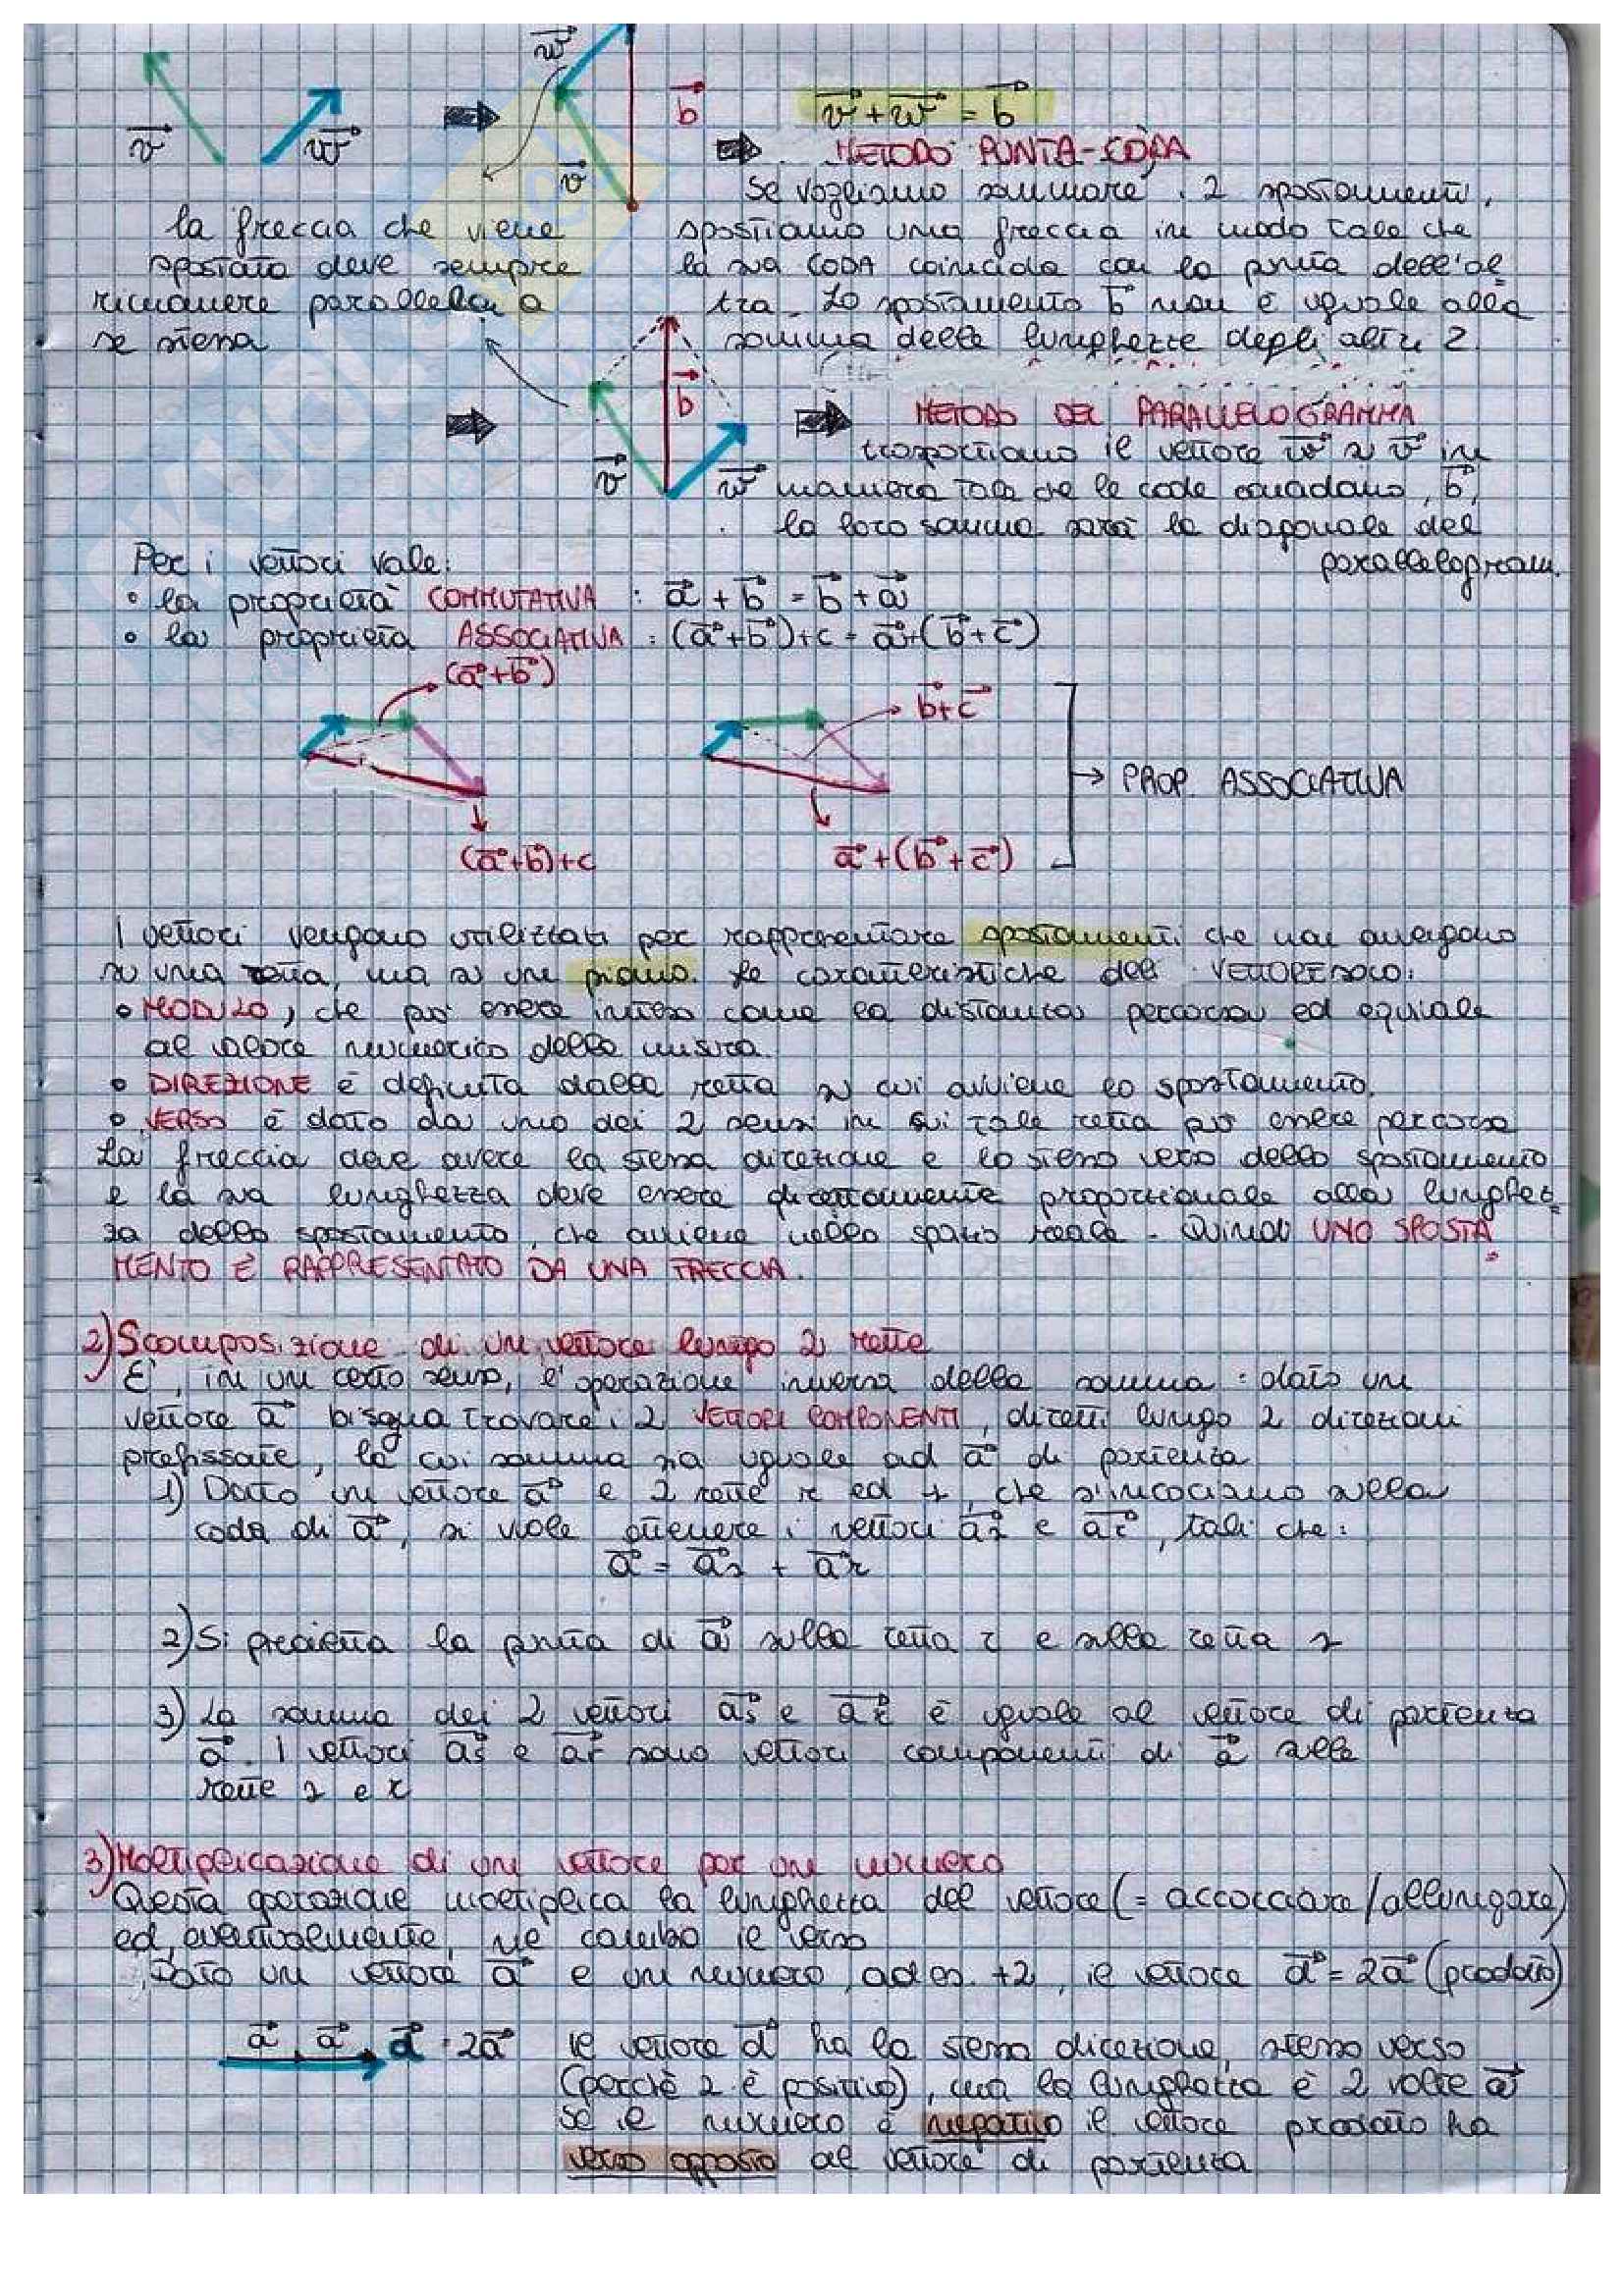 v⃗ w⃗
w⃗
v⃗
b⃗
v⃗ + w⃗ = b⃗
METODO PUNTA-CODA
se vogliamo sommare i 2 spostamenti,
spostiamo una freccia in modo tale che
la sua CODA coincida con la punta dell'al
tra. Lo spostamento b⃗ non è uguale alla
somma delle lunghezze degli altri 2.
la freccia che viene
spostata deve sempre
rimanere parallela a
se stessa
v⃗ b⃗ w⃗
METODO DEL PARALLELOGRAMMA
trasportiamo il vettore w⃗ su v⃗ in
maniera tale che le code coincidano, b⃗,
la loro somma sarà la diagonale del
parallelogram.
Per i vettori vale:
• la proprietà COMMUTATIVA : a⃗ + b⃗ = b⃗ + a⃗
• la proprietà ASSOCIATIVA : (a⃗+b⃗)+c = a⃗+(b⃗+c⃗)
(a⃗+b⃗)
b⃗+c⃗
→ PROP. ASSOCIATIVA
(a⃗+b⃗)+c
a⃗+(b⃗+c⃗)
I vettori vengono utilizzati per rappresentare spostamenti che non avvengono
su una retta, ma su un piano. Le caratteristiche dei VETTORI SONO:
• MODULO, che può essere inteso come la distanza percorsa ed equivale
al valore numerico della misura.
• DIREZIONE è definita dalla retta su cui avviene lo spostamento.
• VERSO è dato da uno dei 2 sensi in cui tale retta può essere percorsa
La freccia deve avere la stessa direzione e lo stesso verso dello spostamento
e la sua lunghezza deve essere direttamente proporzionale alla lunghez
za dello spostamento, che avviene nello spazio reale. Quindi UNO SPOSTA
MENTO È RAPPRESENTATO DA UNA FRECCIA.
2) Scomposizione di un vettore lungo 2 rette
E', in un certo senso, l'operazione inversa della somma: dato un
vettore a⃗ bisogna trovare i 2 VETTORI COMPONENTI, diretti lungo 2 direzioni
prefissate, la cui somma sia uguale ad a⃗ di partenza
1) Dato un vettore a⃗ e 2 rette r ed s, che s'incrociano sulla
coda di a⃗, si vuole ottenere i vettori a⃗s e a⃗r, tali che:
a⃗ = a⃗s + a⃗r
2) Si proietta la punta di a⃗ sulla retta r e sulla retta s
3) La somma dei 2 vettori a⃗s e a⃗r è uguale al vettore di partenza
a⃗. I vettori a⃗s e a⃗r sono vettori componenti di a⃗ sulle
rette s e r
3) Moltiplicazione di un vettore per un numero
Questa operazione moltiplica la lunghezza del vettore (= accorciare/allungare)
ed, eventualmente, ne cambia il verso
Dato un vettore a⃗ e un numero, ad es. +2, il vettore d⃗ = 2a⃗ (prodotto)
a⃗ a⃗ d⃗ = 2a⃗ il vettore d⃗ ha la stessa direzione, stesso verso
(perchè 2 è positivo), ma la lunghezza è 2 volte a⃗
se il numero è negativo il vettore prodotto ha
verso opposto al vettore di partenza